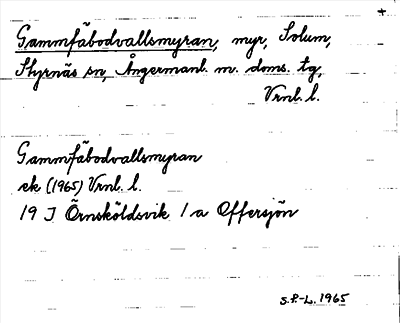 +
Gammfäbodvallsmyran, myr, Solum,
Styrnäs sn, Ångermanl. m. doms. tg,
Vrnl. l.
Gammfäbodvallsmyran
ek (1965) Vrnl. l.
19 J Örnsköldsvik 1 a Offersjön
S.F.-L. 1965